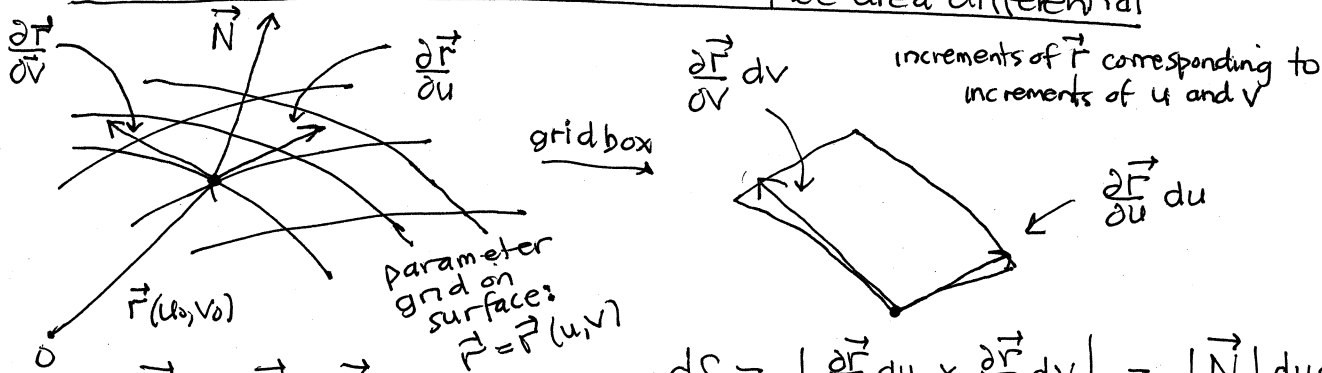 area differential
∂r⃗/∂v
N⃗
∂r⃗/∂u
∂r⃗/∂v dv
increments of r⃗ corresponding to
increments of u and v
grid box
∂r⃗/∂u du
r⃗(u₀,v₀)
parameter
grid on
surface:
r⃗ = r⃗(u,v)
O
dS = | ∂r⃗/∂u du × ∂r⃗/∂v dv | = |N⃗| du